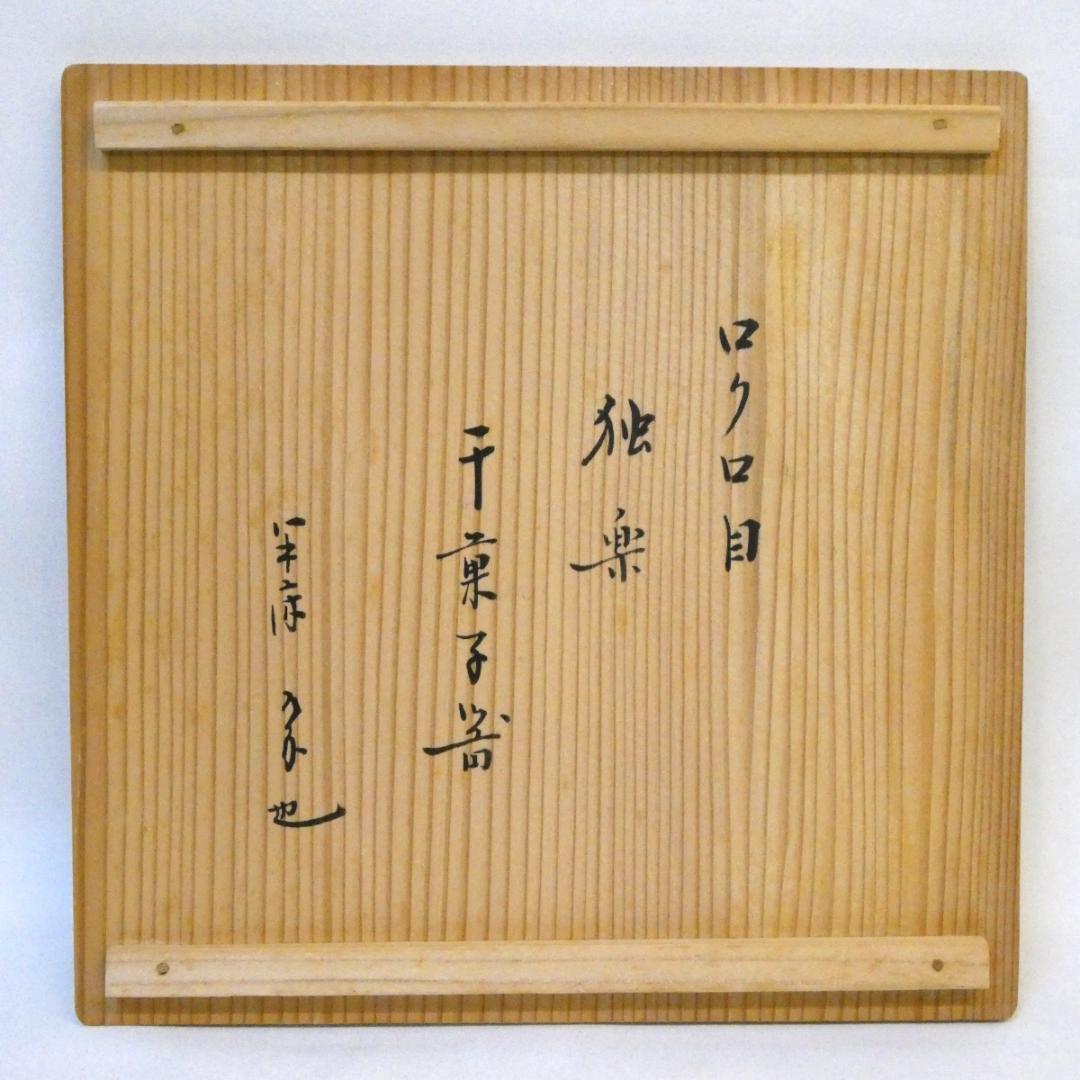 ロクロ目
独楽
干菓子器
半床 也